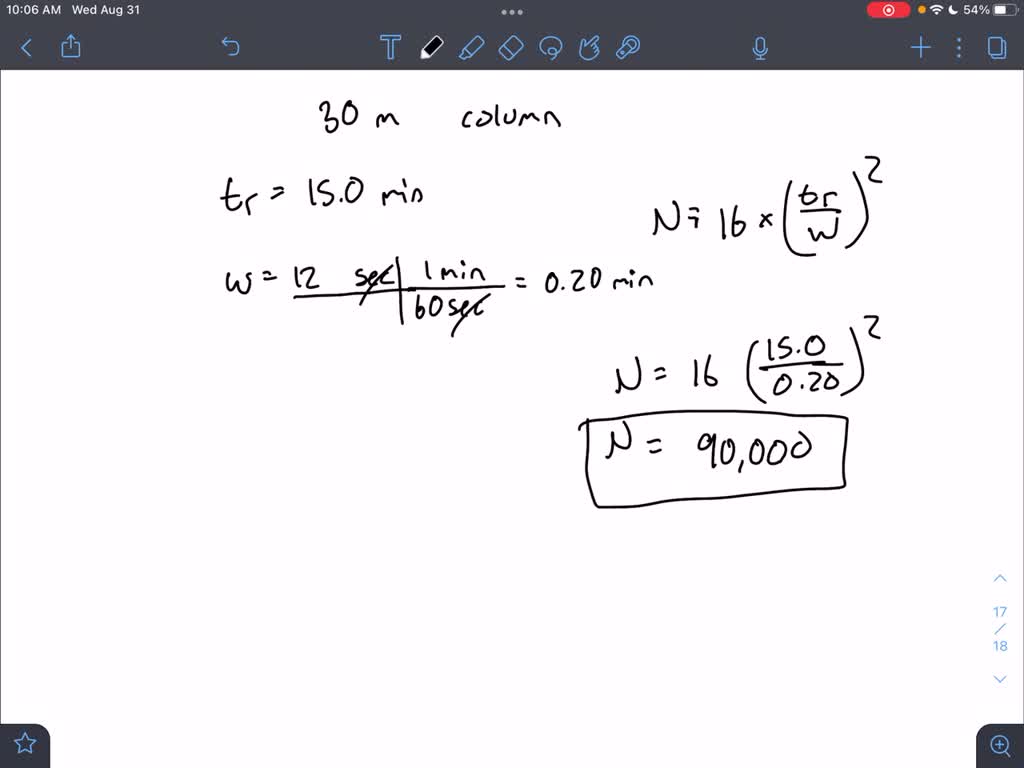 10:06 AM Wed Aug 31
54%
30 m column
tr = 15.0 min
N = 16 × (tr/W)²
w = 12 sec | 1 min / 60 sec = 0.20 min
N = 16 (15.0/0.20)²
N = 90,000
17
/
18